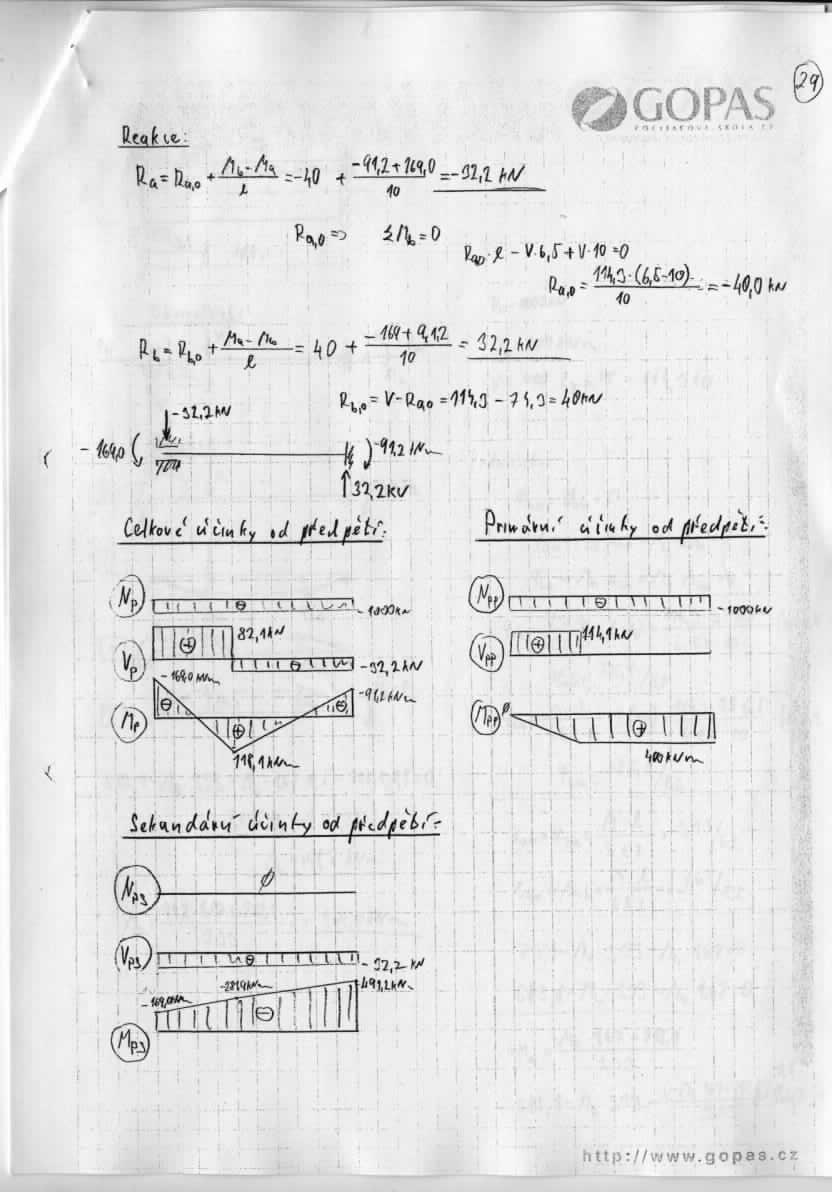 29
GOPAS
POČÍTAČOVÁ ŠKOLA
Reakce:
Ra = Ra,0 + (Mb - Ma)/l = -40 + (-91,2 + 169,0)/10 = -32,2 kN
Ra,0 => ΣMb = 0
Ra,0 · l - V·6,5 + V·10 = 0
Ra,0 = 114,3·(6,5-10)/10 = -40,0 kN
Rb = Rb,0 + (Ma - Mb)/l = 40 + (-169 + 91,2)/10 = 32,2 kN
Rb,0 = V - Ra,0 = 114,3 - 74,3 = 40 kN
-32,2 kN
-169,0
-91,2 kNm
32,2 kN
Celkové účinky od předpětí:
Primární účinky od předpětí:
Np
-1000 kN
Vp
82,1 kN
-32,2 kN
Mp
-169,0 kNm
-91,2 kNm
118,1 kNm
Npp
-1000 kN
Vpp
114,1 kN
Mpp
Ø
400 kNm
Sekundární účinky od předpětí:
Nps
Ø
Vps
-32,2 kN
Mps
-169,0 kNm
-491,2 kNm
http://www.gopas.cz